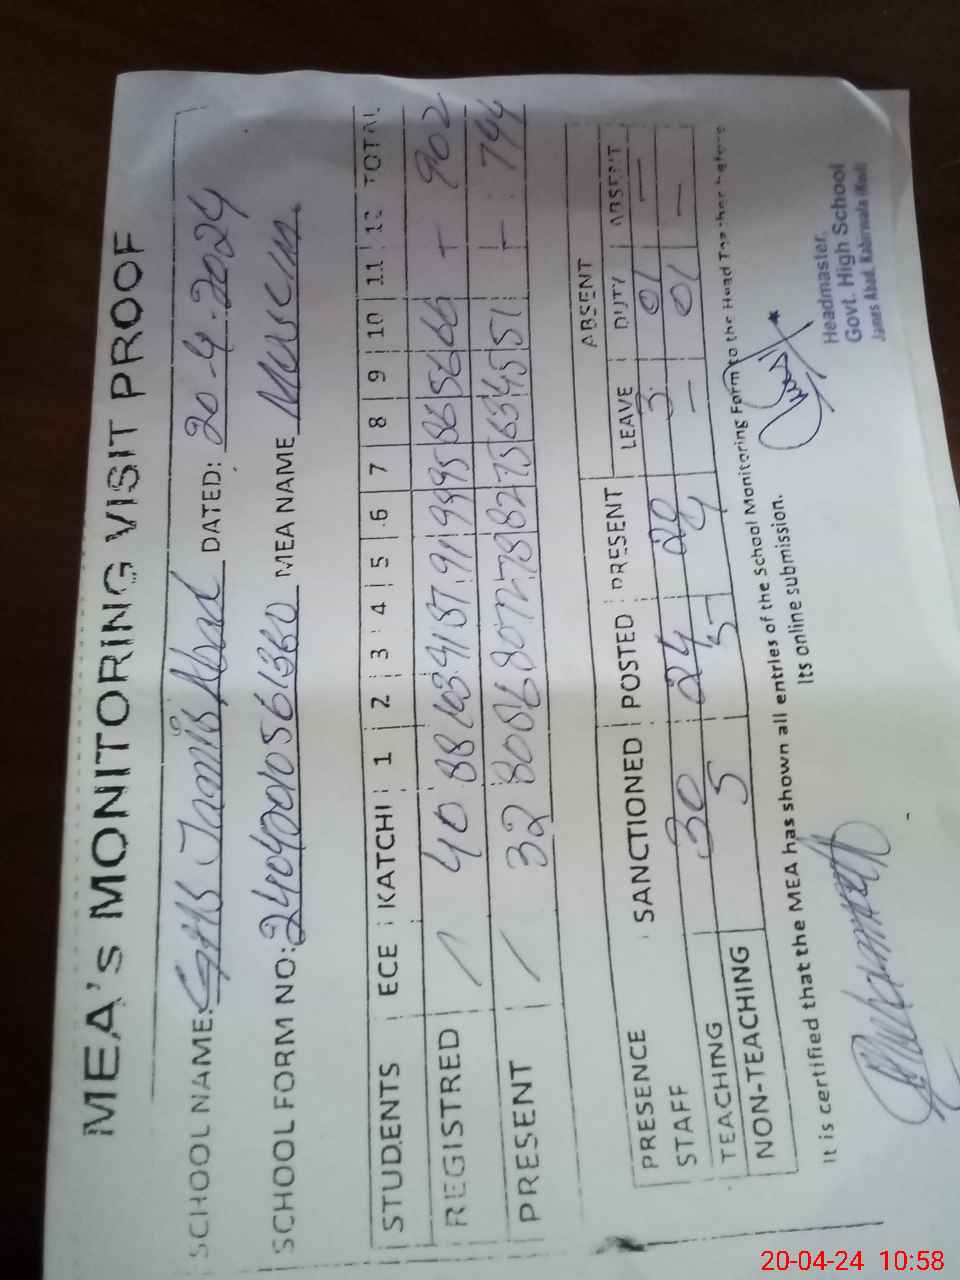 MEA's MONITORING VISIT PROOF
SCHOOL NAME: GHS DATED: 20-4-2024
SCHOOL FORM NO: MEA NAME
STUDENTS ECE KATCHI 1 2 3 4 5 6 7 8 9 10 11 12 TOTAL
REGISTRED / 40 88 103 91 91 95 86 56 66 - 902
PRESENT / 32 80 86 80 72 78 82 75 63 45 51 - 744
ABSENT
PRESENCE SANCTIONED POSTED PRESENT LEAVE DUTY ABSENT
STAFF
TEACHING 30 24 20 3 01 —
NON-TEACHING 5 5 4 — 01 —
It is certified that the MEA has shown all entries of the School Monitoring Form to the Head Teacher before
Its online submission.
Headmaster,
Govt. High School
Kabirwala
20-04-24 10:58